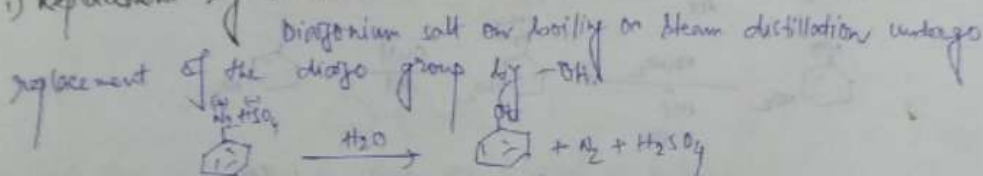 i) Replacement
Diazonium salt on boiling or steam distillation undergo
replacement of the diazo group by -OH.
(+) (-)
N₂ HSO₄ OH
H₂O → + N₂ + H₂SO₄